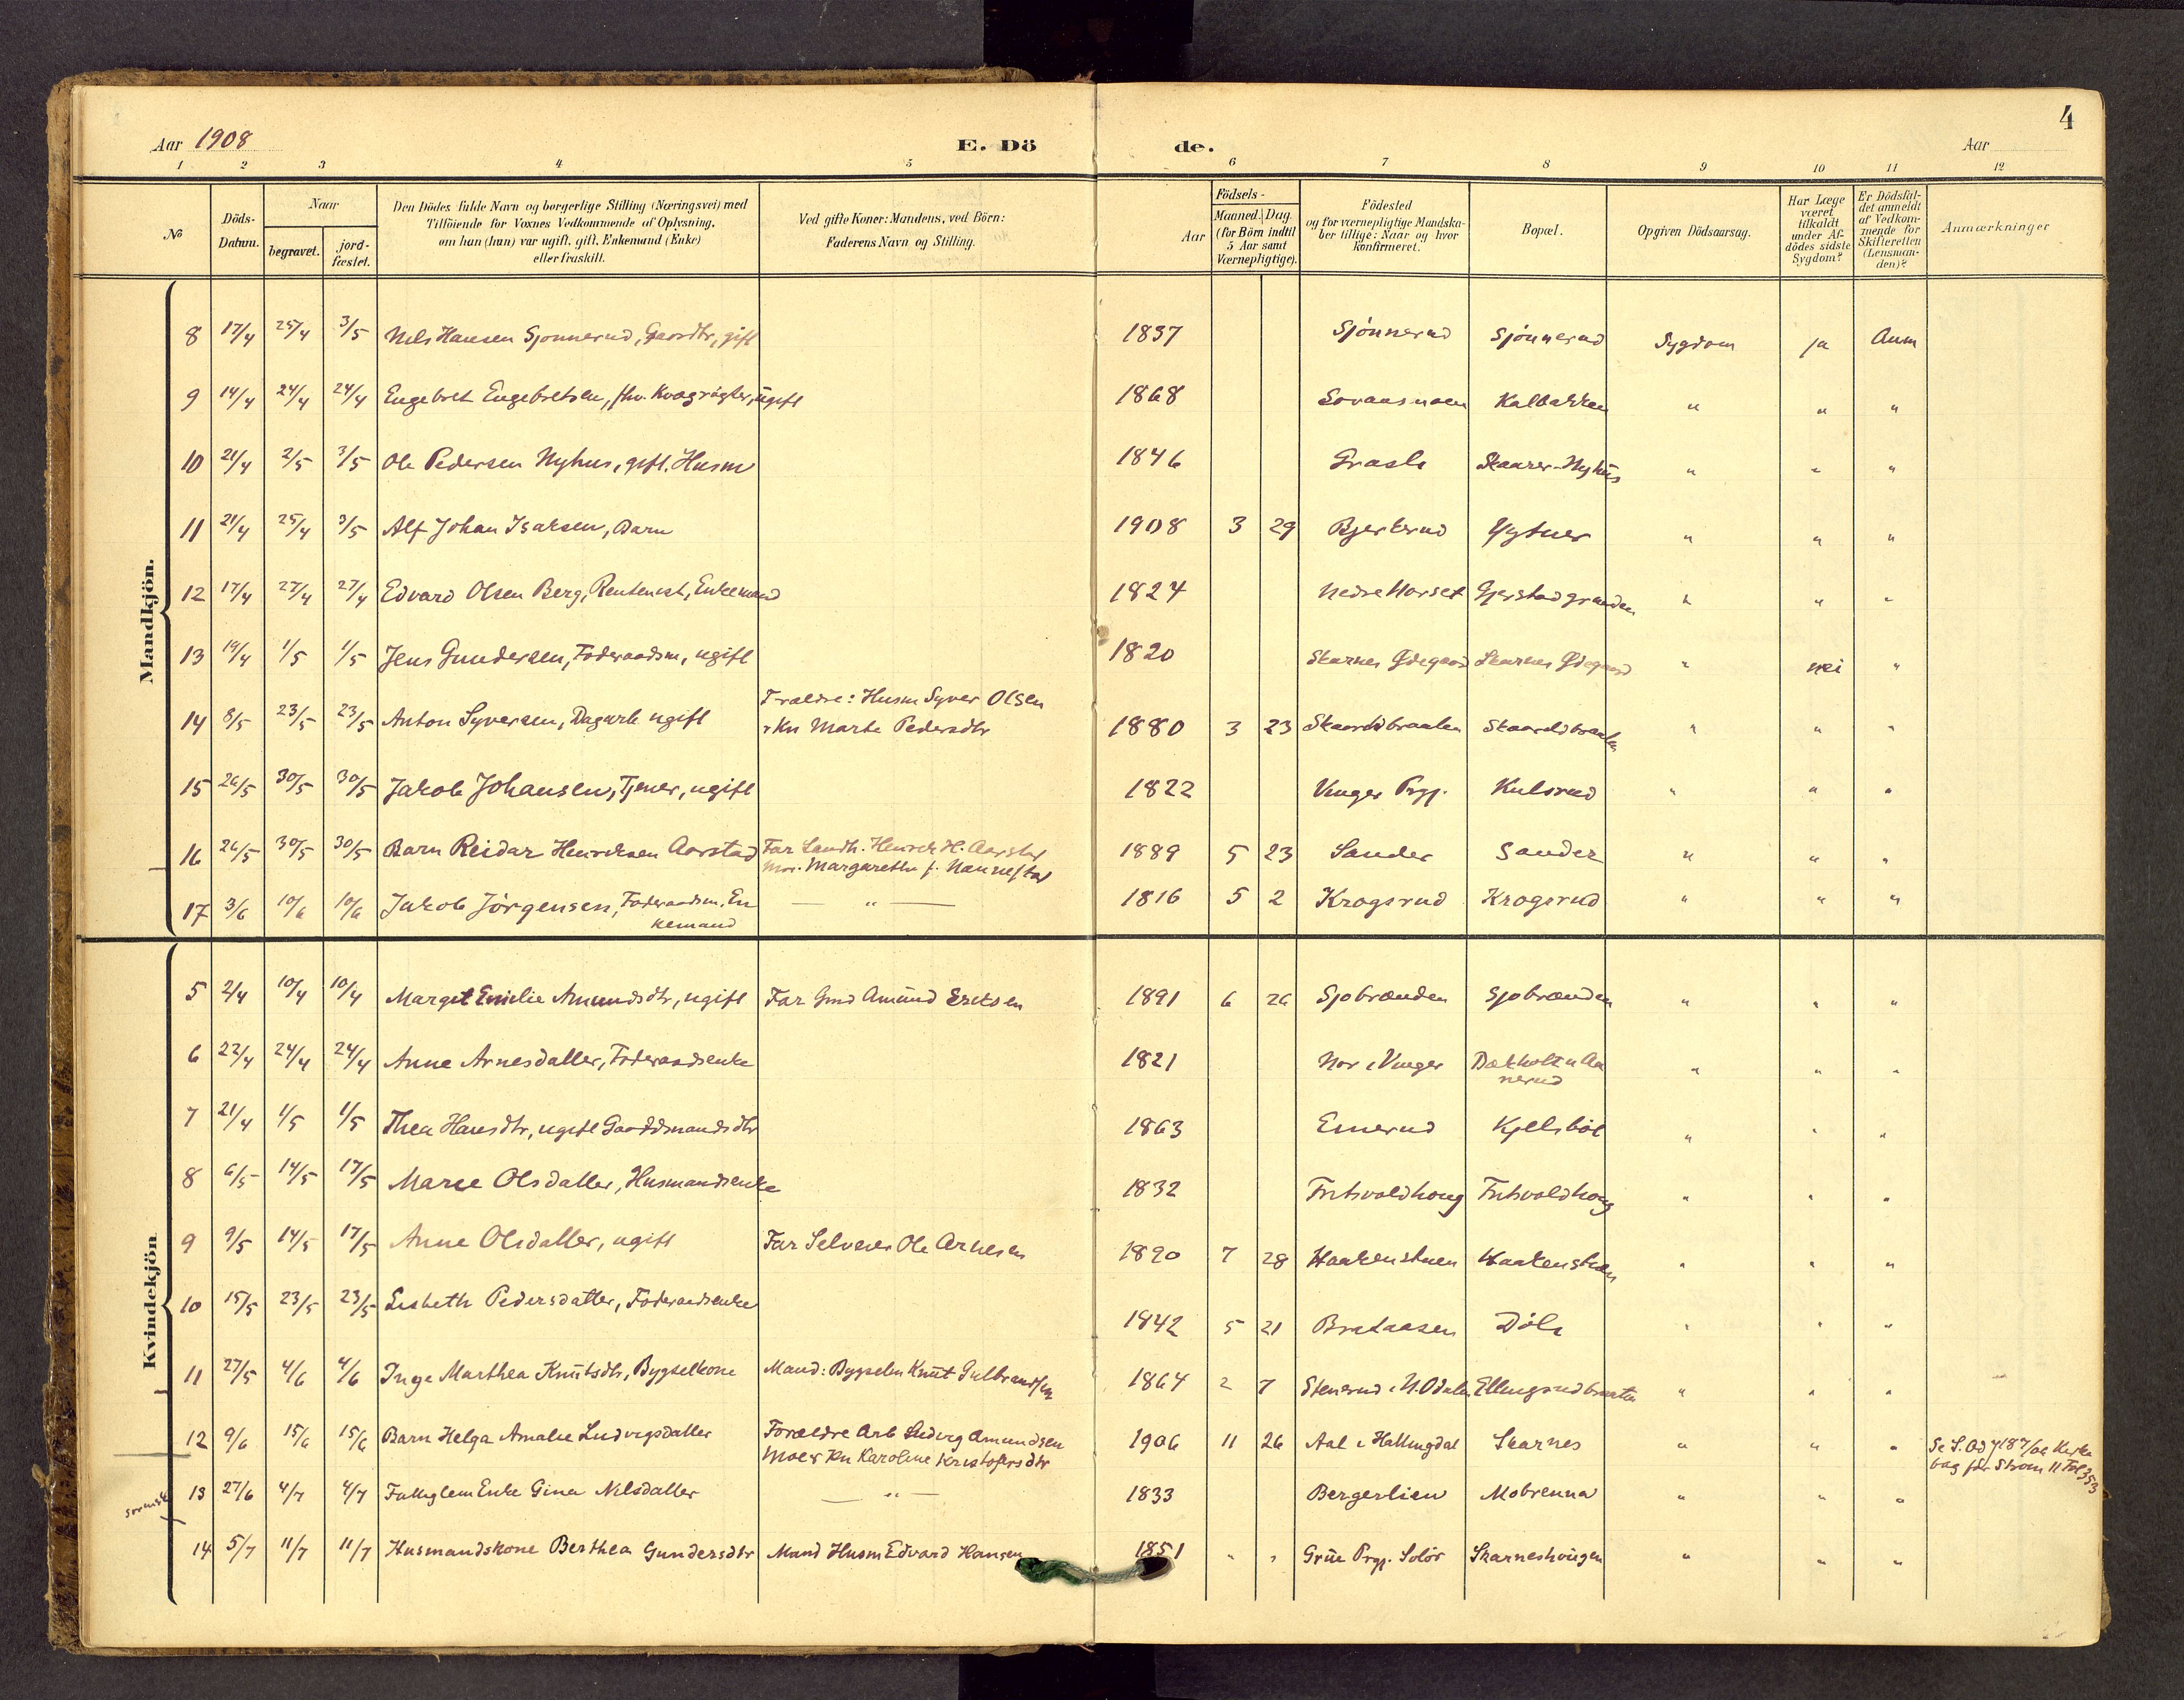 4
Aar 1908
E. Dö
de.
Aar
1 2 3 4 5 6 7 8 9 10 11 12
No
Döds-
Datum.
Naar
begravet.
jord-
fæstet.
Den Dödes fulde Navn og borgerlige Stilling (Næringsvei) med
Tilföiende for Voxnes Vedkommende af Oplysning,
om han (hun) var ugift, gift, Enkemand (Enke)
eller fraskilt.
Ved gifte Koner: Mandens, ved Börn:
Faderens Navn og Stilling.
Aar
Födsels-
Maaned. Dag.
(for Börn indtil
5 Aar samt
Værnepligtige).
Födested
og for værnepligtige Mandska-
ber tillige: Naar og hvor
Konfirmeret.
Bopæl.
Opgiven Dödsaarsag.
Har Læge
været
tilkaldt
under Af-
dödes sidste
Sygdom?
Er Dödsfal-
det anmeldt
af Vedkom-
mende for
Skifteretten
(Lensman-
den)?
Anmærkninger
Mandkjön.
8 17/4 25/4 3/5 Nils Hansen Sjonnerud, Gaardbr, gift 1837 Sjönnerud Sjönnerud Sygdom ja Anm
9 14/4 24/4 24/4 Engebret Engebretsen, fhv. Kvægrögter, ugift 1868 Kalbakken " " "
10 21/4 2/5 3/5 Ole Pedersen Nyhus, gift. Husm 1846 Skaarer-Nyhus " " "
11 21/4 25/4 3/5 Alf Johan Isaksen, Barn 1908 3 29 Bjerkerud " " "
12 17/4 27/4 27/4 Edvard Olsen Berg, Rentenist, Enkemand 1824 Nedre Horset Gjerstadgranden " " "
13 19/4 1/5 1/5 Jens Gundersen, Föderaadsm, ugift 1820 Skarnes Ødegaard Skarnes Ødegaard " nei "
14 8/5 23/5 23/5 Anton Syversen, Dagarb ugift Forældre: Husm Syver Olsen
+ Kn Marte Pedersdtr 1880 3 23 Skaaroldbraaten Skaaroldbraaten " " "
15 26/5 30/5 30/5 Jakob Johansen, Tjener, ugift 1822 Vinger Prgj. Kulsrud " " "
16 26/5 30/5 30/5 Barn Reidar Henriksen Aarstad Far Landh. Henrik H. Aarstad
Mor. Margarethe f. Nannestad 1889 5 23 Sander Sander " " "
17 3/6 10/6 10/6 Jakob Jörgensen, Föderaadsm. En
kemand — " — 1816 5 2 Krogsrud Krogsrud " " "
Kvindekjön
5 2/4 10/4 10/4 Margit Emilie Amundsdtr, ugift Far Gmd Amund Eriksen 1891 6 26 Sjobrænden Sjobrænden " " "
6 22/4 24/4 24/4 Anne Arnesdatter, Föderaadsenke 1821 Nor i Vinger
7 21/4 1/5 1/5 Thea Hansdtr, ugift Gaardmandsdtr 1863 Einerud Kjelsböl " " "
8 6/5 14/5 17/5 Marie Olsdatter, Husmandsenke 1832 Fritsvoldhoug Fritsvoldhoug " " "
9 9/5 14/5 17/5 Anne Olsdatter, ugift Far Selveier Ole Arnesen 1890 7 28 Haakenstuen Haakenstuen " " "
10 15/5 23/5 23/5 Lisbeth Pedersdatter, Föderaadsenke 1842 5 21 Brataasen Döli " " "
11 27/5 4/6 4/6 Inge Marthea Knutsdtr, Bygselkone Mand: Bygselm Knut Gulbrandsen 1864 2 7 Stenerud i N. Odalen Ellingsrudbraaten " " "
12 9/6 15/6 15/6 Barn Helga Amalie Ludvigsdatter Forældre Arb Ludvig Amundsen
Moer Kn Karoline Kristofersdtr 1906 11 26 Aal i Hallingdal Skarnes " " "
13 27/6 4/7 4/7 Fattiglem Enke Gina Nilsdatter — " — 1833 Bergerlien Mobrenna " " "
14 5/7 11/7 11/7 Husmandskone Berthea Gundersdtr Mand Husm Edvard Hansen 1851 " " Grue Prgj. Solör Skarneshaugen " " "